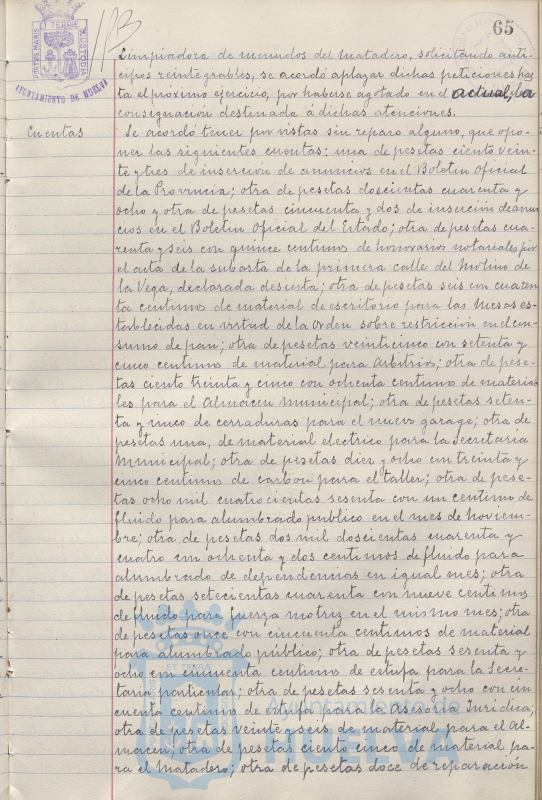 65
Limpiadora de menudos del Matadero, solicitando anti-
cipos reintegrables, se acordó aplazar dichas peticiones has
ta el próximo ejercicio, por haberse agotado en el actual, la
consignación destinada á dichas atenciones.
Cuentas
Se acordó tener por vistas sin reparo alguno, que opo-
ner las siguientes cuentas: una de pesetas ciento vein-
te y tres de inserción de anuncios en el Boletin Oficial
de la Provincia; otra de pesetas doscientas cuarenta y
ocho y otra de pesetas cincuenta y dos de inserción de anun
cios en el Boletin Oficial del Estado; otra de pesetas cua-
renta y seis con quince centimos de honorarios notariales por
el acta de la subasta de la primera calle del Molino de
la Vega, declarada desierta; otra de pesetas seis con cuaren
ta centimos de material de escritorio para las Mesas es-
tablecidas en virtud de la Orden sobre restricción en el con-
sumo de pan; otra de pesetas veinticinco con setenta y
cinco centimos de material para Arbitrios; otra de pese-
tas ciento treinta y cinco con ochenta centimos de materia-
les para el Almacen Municipal; otra de pesetas seten-
ta y cinco de cerraduras para el nuevo garage; otra de
pesetas una, de material electrico para la Secretaria
Municipal; otra de pesetas diez y ocho con treinta y
cinco centimos de carbon para el taller; otra de pese-
tas ocho mil cuatrocientas sesenta con un centimo de
fluido para alumbrado publico en el mes de Noviem-
bre; otra de pesetas dos mil doscientas cuarenta y
cuatro con ochenta y dos centimos de fluido para
alumbrado de dependencias en igual mes; otra
de pesetas setecientas cuarenta con nueve centimos
de fluido para fuerza motriz en el mismo mes; otra
de pesetas once con cincuenta centimos de material
para alumbrado público; otra de pesetas sesenta y
ocho con cincuenta centimos de estufa para la Secre-
taria particular; otra de pesetas sesenta y ocho con cin
cuenta centimos de estufa para la Asesoria Juridica;
otra de pesetas veinte y seis de material para el Al-
macen; otra de pesetas ciento cinco de material pa-
ra el Matadero; otra de pesetas doce de reparación
AYUNTAMIENTO DE HUELVA
PORTUS MARIS ET TERRE CUSTODIA
Ayuntamiento de
HUELVA